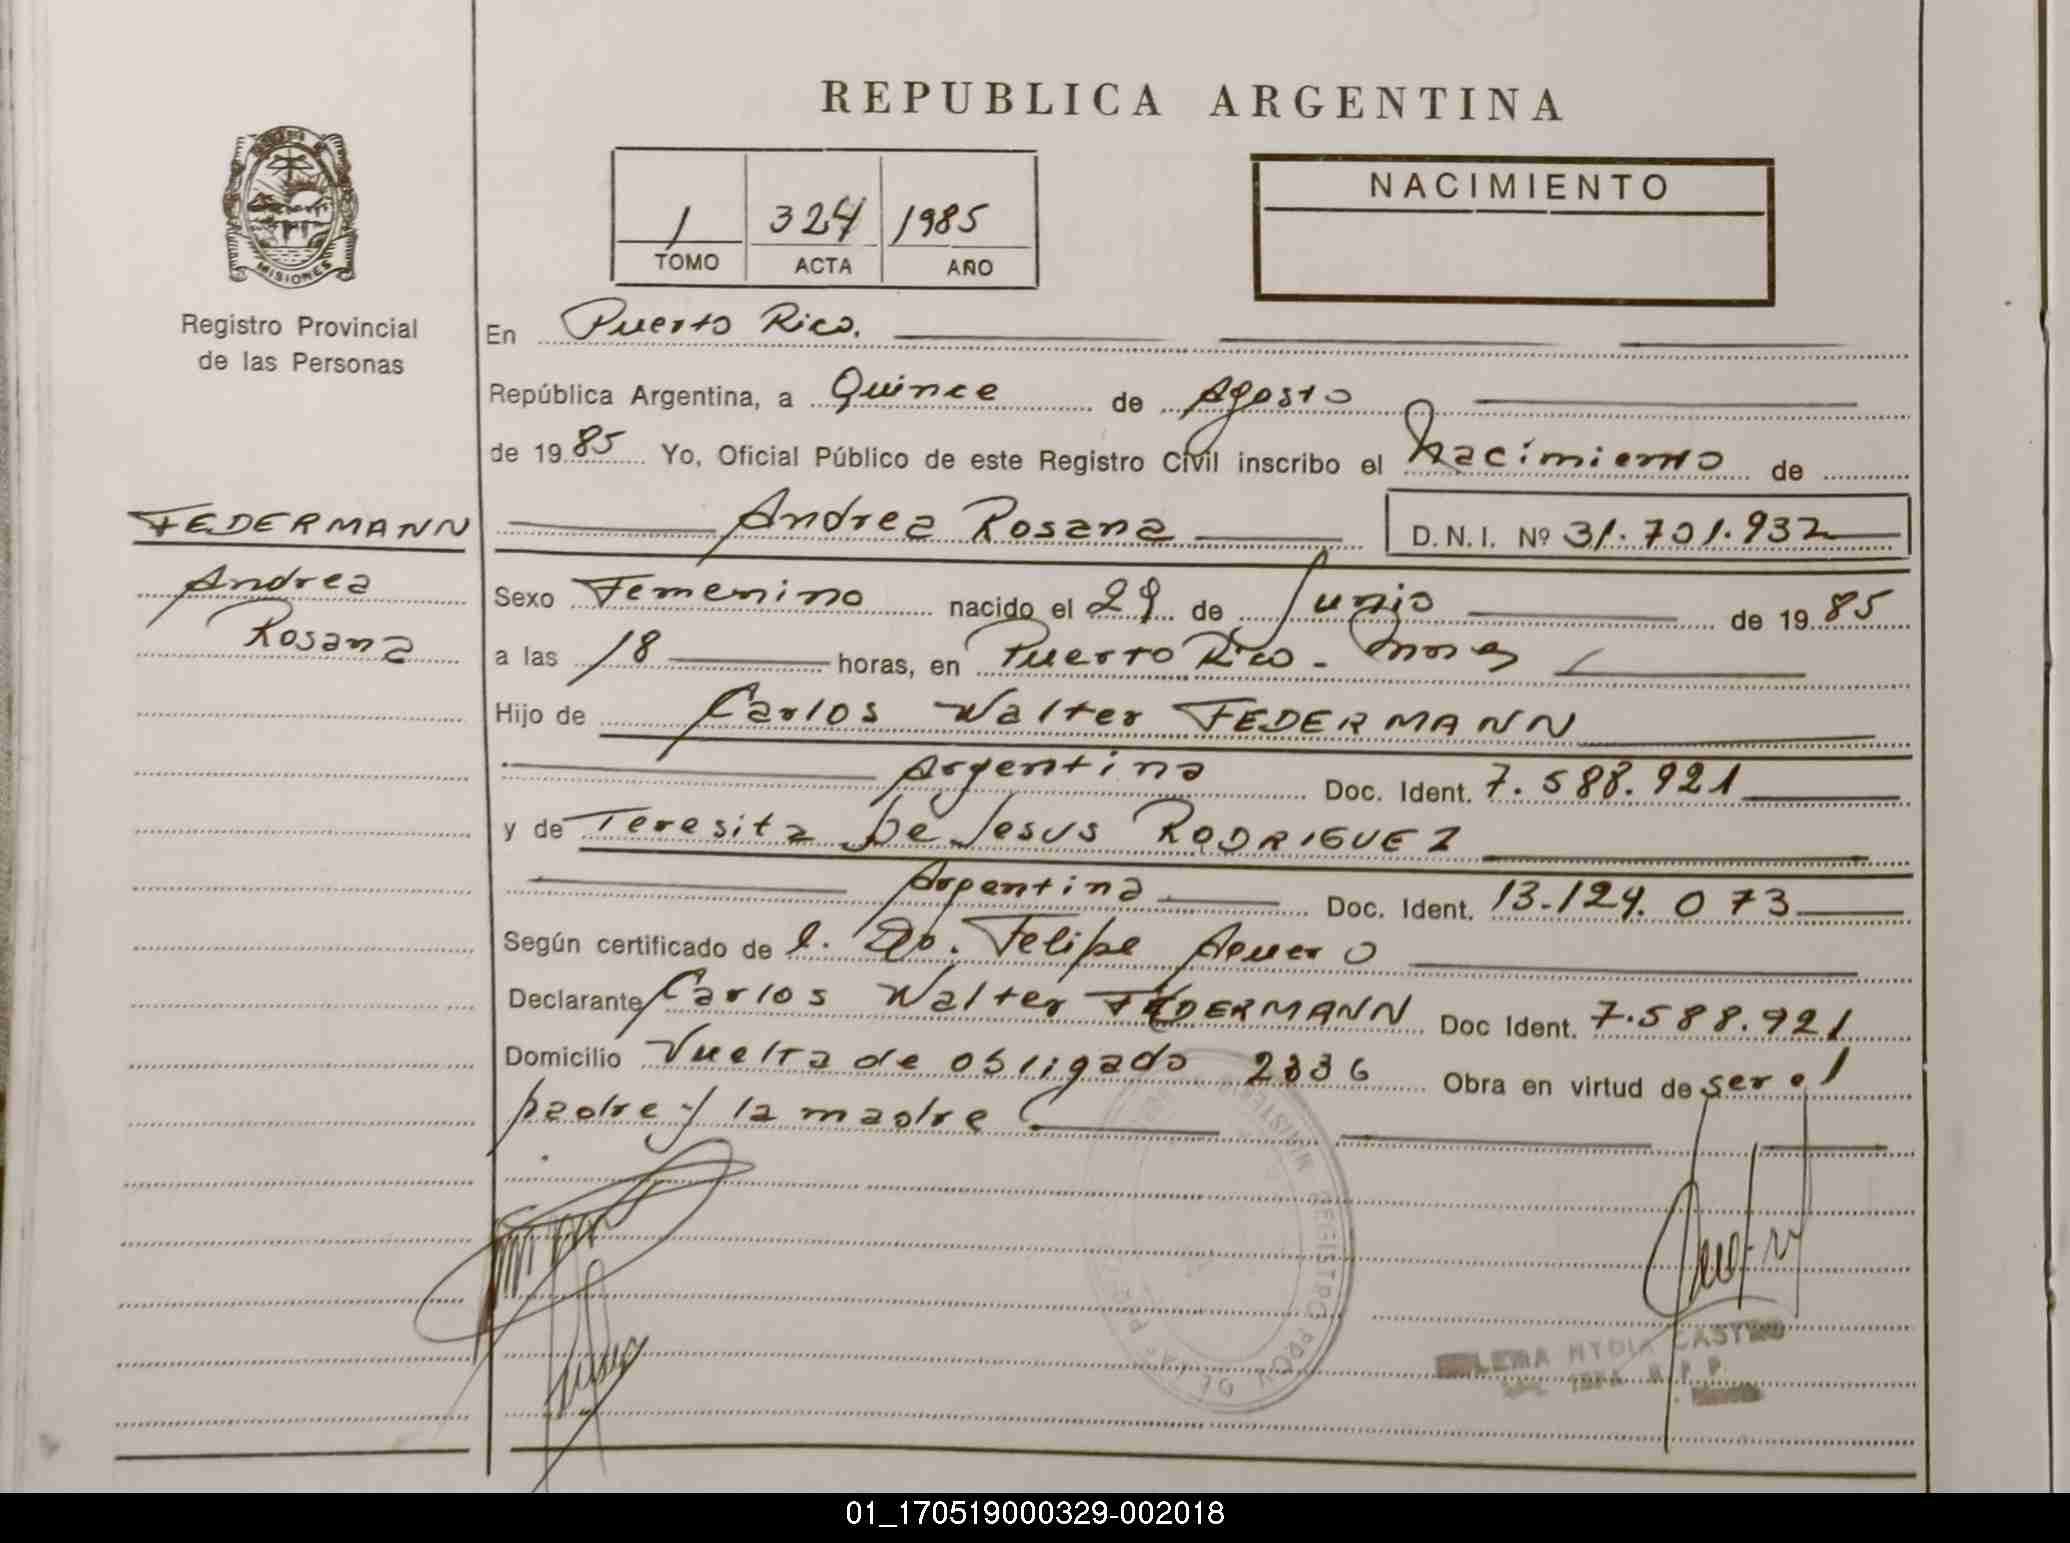 REPUBLICA ARGENTINA
MISIONES
Registro Provincial
de las Personas
1 324 1985
TOMO ACTA AÑO
NACIMIENTO
En Puerto Rico.
República Argentina, a Quince de Agosto
de 1985 Yo, Oficial Público de este Registro Civil inscribo el Nacimiento de
FEDERMANN
Andrea
Rosana
Andrea Rosana D.N.I. Nº 31.701.932
Sexo Femenino nacido el 29 de Junio de 1985
a las 18 horas, en Puerto Rico - Mnes
Hijo de Carlos Walter FEDERMANN
Argentina Doc. Ident. 7.588.921
y de Teresita De Jesus RODRIGUEZ
Argentina Doc. Ident. 13.124.073
Según certificado de l. Do. Felipe Aguero
Declarante Carlos Walter FEDERMANN Doc Ident. 7.588.921
Domicilio Vuelta de obligado 2336 Obra en virtud de ser el
padre y la madre
REGISTRO PROV. DE LAS
NYDIA CASTRO
R. P. P.
01_170519000329-002018